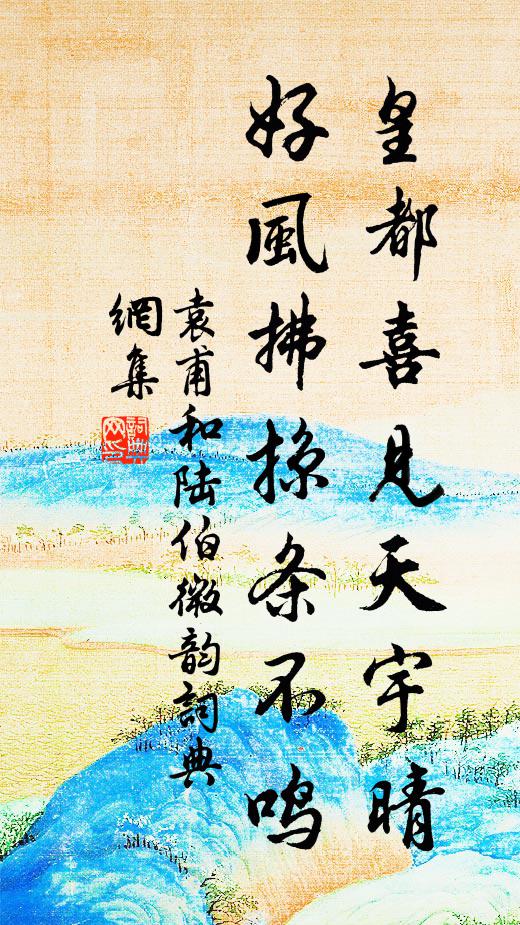 皇都喜見天宇晴
好風拂掠条不鳴
袁甫和陆伯微韵詞典
網集